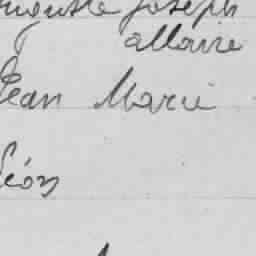 Auguste Joseph
allaire
Jean Marie
Léon